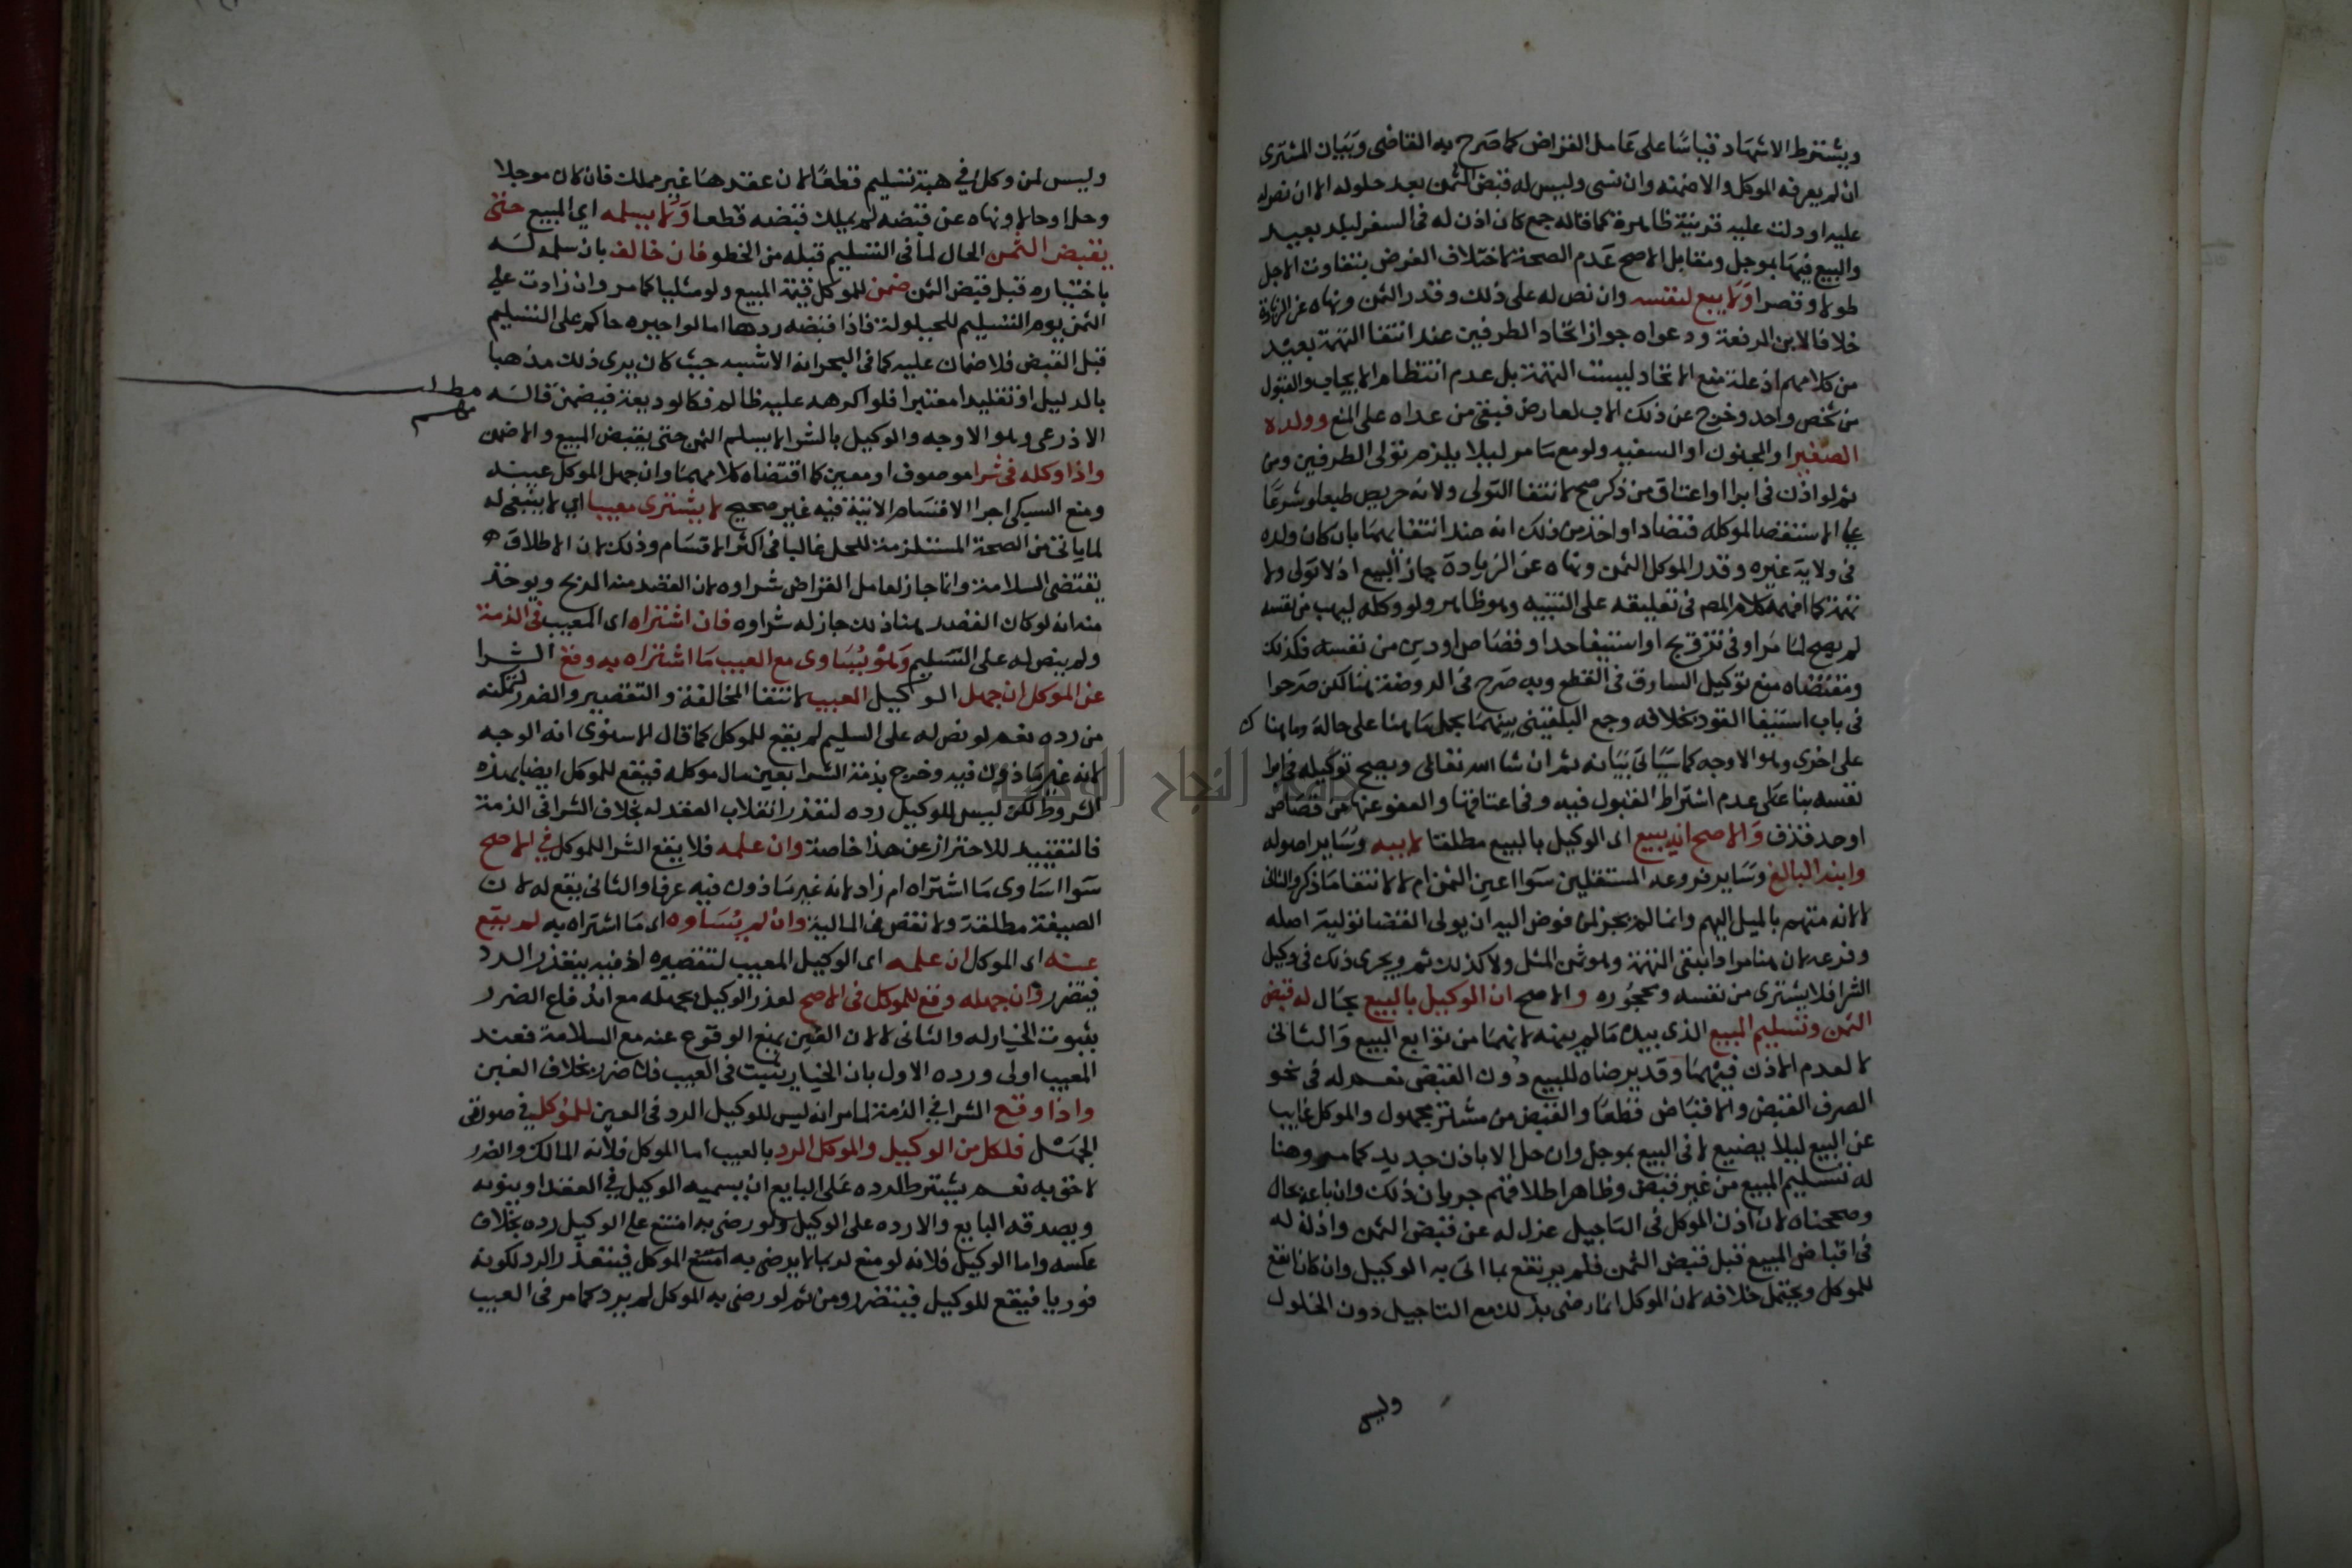 ويشترط الاشهاد قياسا على عامل القراض كما صرح به القاضى وبيان المشترى
ان لم يعرفه الموكل والا ضمنه وان نسى وليس له قبض الثمن بعد حلوله الا ان نص له
عليه او دلت عليه قرينة ظاهرة كما قاله جمع كان اذن له فى السفر لبلد بعيد
والبيع فيها بموجل ومقابل الاصح عدم الصحة لاختلاف الغرض بتفاوت الاجل
طولا وقصرا ولا يبيع لنفسه وان نص له على ذلك وقدر الثمن ونهاه عن الزيادة
خلافا لابن الرفعة ودعواه جواز اتحاد الطرفين عند انتفا التهمة بعيد
من كلامهم اذ علة منع الاتحاد ليست التهمة بل عدم انتظام الايجاب والقبول
من شخص واحد وخرج عن ذلك الاب لعارض فبقى من عداه على المنع وولده
الصغير او المجنون او السفيه ولو مع ما مر ليلا يلزم تولى الطرفين ومن
ثم لو اذن فى ابرا او اعتاق من ذكر صح لانتفا التولى ولانه حريص طبعا وشرعا
على الاستقصا لموكله فتضادا واخذ من ذلك انه عند انتفايهما بان كان ولده
فى ولاية غيره وقدر الموكل الثمن ونهاه عن الزيادة جاز البيع اذ لا تولى ولا
تهمة كما افهمه كلام المص فى تعليقه على التنبيه وهو ظاهر ولو وكله ليهب من نفسه
لم يصح لما مر او فى تزويج او استيفا حد او قصاص او دين من نفسه فكذلك
ومقتضاه منع توكيل السارق فى القطع وبه صرح فى الروضة هنا لكن صرحوا
فى باب استيفا القود بخلافه وجمع البلقينى بينهما بحمل ما هنا على حالة وما هناك
على اخرى وهو الاوجه كما سياتى بيانه ثم ان شا الله تعالى ويصح توكيله فى ابرا
نفسه بنا على عدم اشتراط القبول فيه وفى اعتاقها والعفو عنها من قصاص
او حد قذف والاصح انه يبيع اى الوكيل بالبيع مطلقا لابيه وساير اصوله
وابنه البالغ وساير فروعه المستقلين سوا اعين الثمن ام لا لانتفا ما ذكر والثانى
لا لانه متهم بالميل اليهم وانما لم يجز لمن فوض اليه ان يولى القضا تولية اصله
وفرعه لان هنا مردا ينفى التهمة وهو ثمن المثل ولا كذلك ثم ويجرى ذلك فى وكيل
الشرا فلا يشترى من نفسه ومحجوره والاصح ان الوكيل بالبيع بحال له قبض
الثمن وتسليم المبيع الذى بيده ما لم ينهه لانهما من توابع البيع والثانى
لا لعدم الاذن فيهما وقد يرضاه للبيع دون القبض نعم له فى نحو
الصرف القبض والاقباض قطعا والقبض من مشتر مجهول والموكل غايب
عن البيع ليلا يضيع لا فى البيع بموجل وان حل الا باذن جديد كما مر وهنا
له تسليم المبيع من غير قبض وظاهر اطلاقهم جريان ذلك وان باعه بحال
وصححناه لان اذن الموكل فى التاجيل عزل له عن قبض الثمن واذن له
فى اقباض المبيع قبل قبض الثمن فلم يرتفع بما اتى به الوكيل وان كان انفع
للموكل ويحتمل خلافه لان الموكل انما رضى بذلك مع التاجيل دون الحلول
وليس
وليس لمن وكل فى هبة تسليم قطعا لان عقدها غير مملك فان كان موجلا
وحل او حالا ونهاه عن قبضه لم يملك قبضه قطعا ولا يسلمه اى المبيع حتى
يقبض الثمن الحال لما فى التسليم قبله من الخطر فان خالف بان سلمه له
باختياره قبل قبض الثمن ضمن للموكل قيمة المبيع ولو مثليا كما مر وان زادت على
الثمن يوم التسليم للحيلولة فاذا قبضه ردها اما لو اجبره حاكم على التسليم
قبل القبض فلا ضمان عليه كما فى البحر انه الاشبه حيث كان يرى ذلك مذهبا
بالدليل او تقليدا معتبرا فلو اكرهه عليه ظالم فكالوديعة فيضمن قاله
مطلب
مهم
الاذرعى وهو الاوجه والوكيل بالشرا لا يسلم الثمن حتى يقبض المبيع والا ضمن
واذا وكله فى شرا موصوف او معين كما اقتضاه كلامهما وان جهل الموكل عيبه
ومنع السبكى اجرا الاقسام الاتية فيه غير صحيح لا يشترى معيبا اى لا ينبغى له
لما ياتى من الصحة المستلزمة للحل غالبا فى اكثر الاقسام وذلك لان الاطلاق
يقتضى السلامة وانما جاز لعامل القراض شراوه لان القصد منه الربح ويوخذ
منه انه لو كان القصد هنا ذلك جاز له شراوه فان اشتراه اى المعيب فى الذمة
ولم ينص له على التسليم وهو يساوى مع العيب ما اشتراه به وقع الشرا
عن الموكل ان جهل الوكيل العيب لانتفا المخالفة والتقصير والضرر لتمكنه
من رده نعم لو نص له على السليم لم يقع للموكل كما قال الاسنوى انه الوجه
لانه غير ماذون فيه وخرج بذمة الشرا بعين مال موكله فيقع للموكل ايضا بهذه
الشروط لكن ليس للوكيل رده لتعذر انقلاب العقد له بخلاف الشرا فى الذمة
فالتقييد للاحتراز عن هذا خاصة وان علمه فلا يقع الشرا للموكل فى الاصح
سوا اساوى ما اشتراه ام زاد لانه غير ماذون فيه عرفا والثانى يقع له لان
الصيغة مطلقة ولا نقص فى المالية وان لم يساوه اى ما اشتراه به لم يقع
عنه اى الموكل ان علمه اى الوكيل المعيب لتقصيره اذ قد يتعذر الرد
فيتضرر وان جهله وقع للموكل فى الاصح لعذر الوكيل بجهله مع اندفاع الضرر
بثبوت الخيار له والثانى لا لان الغبن يمنع الوقوع عنه مع السلامة فعند
المعيب اولى ورده الاول بان الخيار يثبت فى العيب فلا ضرر بخلاف الغبن
واذا وقع الشرا فى الذمة لما مر انه ليس للوكيل الرد فى العين للموكل فى صورتى
الجهل فلكل من الوكيل والموكل الرد بالعيب اما الموكل فلانه المالك والضرر
لاحق به نعم يشترط لرده على البايع ان يسميه الوكيل فى العقد او ينويه
ويصدقه البايع والا رده على الوكيل ولو رضى به امتنع على الوكيل رده بخلاف
عكسه واما الوكيل فلانه لو منع لربما لا يرضى به الموكل فيتعذر الرد لكونه
فوريا فيقع للوكيل فيتضرر ومن ثم لو رضى به الموكل لم يرد كما مر فى العيب
جامعة النجاح الوطنية